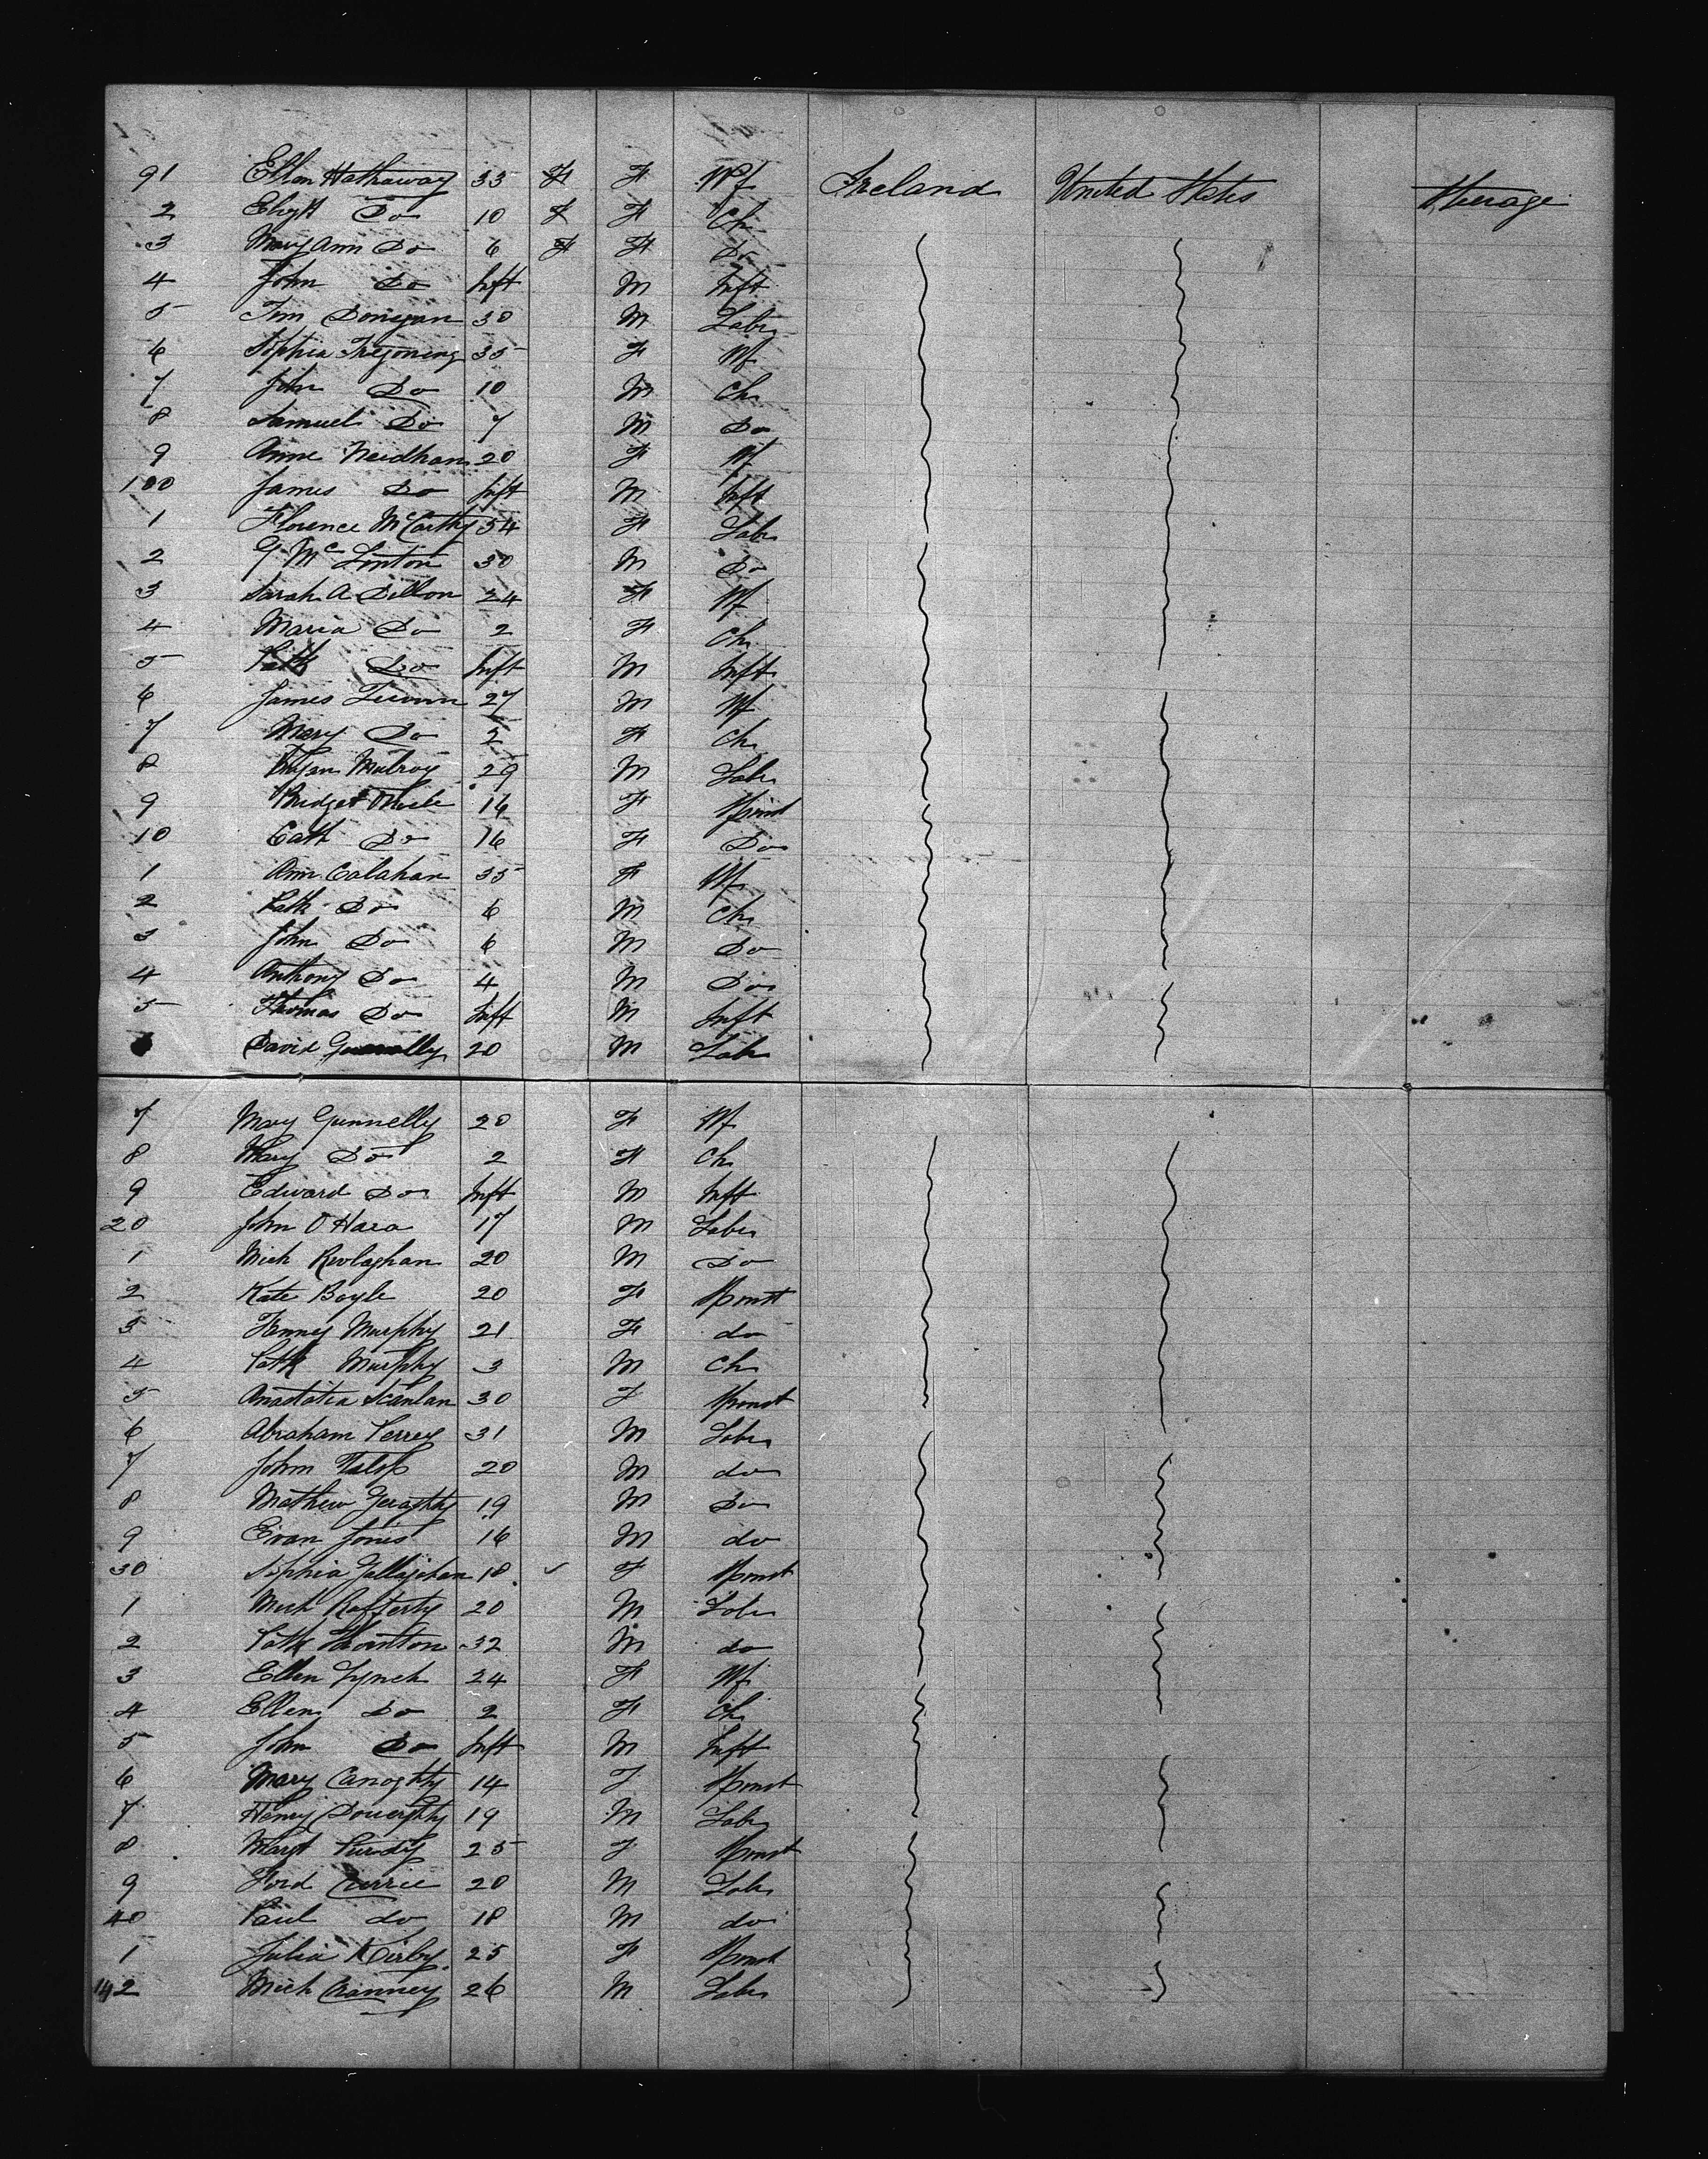 91 Ellen Hathaway 33 F F Wf Ireland United States Steerage
2 Elizth Do 10 F F Ch
3 Mary Ann Do 6 F F Do
4 John Do Inft M Inft
5 Tim Donegan 30 M Labr
6 Sophia Tregoning 35 F Wf
7 John Do 10 M Ch
8 Samuel Do 7 M Do
9 Anne Needham 20 F Wf
100 James Do Inft M Inft
1 Florence McCarthy 54 F Labr
2 McLinton 30 M Do
3 Sarah A Dillon 24 F Wf
4 Maria Do 2 F Ch
5 Patk Do Inft M Inft
6 James 27 M Wf
7 Mary Do 2 F Ch
8 Mulroy 29 M Labr
9 Bridget 16 F Spinst
10 Cath Do 16 F Do
1 Ann Calahan 35 F Wf
2 Patk Do 6 M Ch
3 John Do 6 M Do
4 Anthony Do 4 M Do
5 Thomas Do Inft M Inft
David 20 M Labr
7 Mary Gunnelly 20 F Wf
8 Mary Do 2 F Ch
9 Edward Do Inft M Inft
20 John O Hara 17 M Labr
1 Mich 20 M Do
2 Kate Boyle 20 F Spinst
3 Fanney Murphy 21 F do
4 Patk Murphy 3 M Ch
5 Anastatia Scanlan 30 F Spinst
6 Abraham Perrey 31 M Labr
7 John 20 M do
8 Mathew Geraghty 19 M Do
9 Evan Jones 16 M do
30 Sophia 18 F Spinst
1 Mich Rafferty 20 M Labr
2 Patk Thornton 32 M do
3 Ellen Lynch 24 F Wf
4 Ellen Do 2 F Ch
5 John Do Inft M Inft
6 Mary 14 F Spinst
7 Henry 19 M Labr
8 Margt Purdy 25 F Spinst
9 Ford Currie 20 M Labr
40 Paul do 18 M do
1 Julia Kirby 25 F Spinst
142 Mich Cranney 26 M Labr